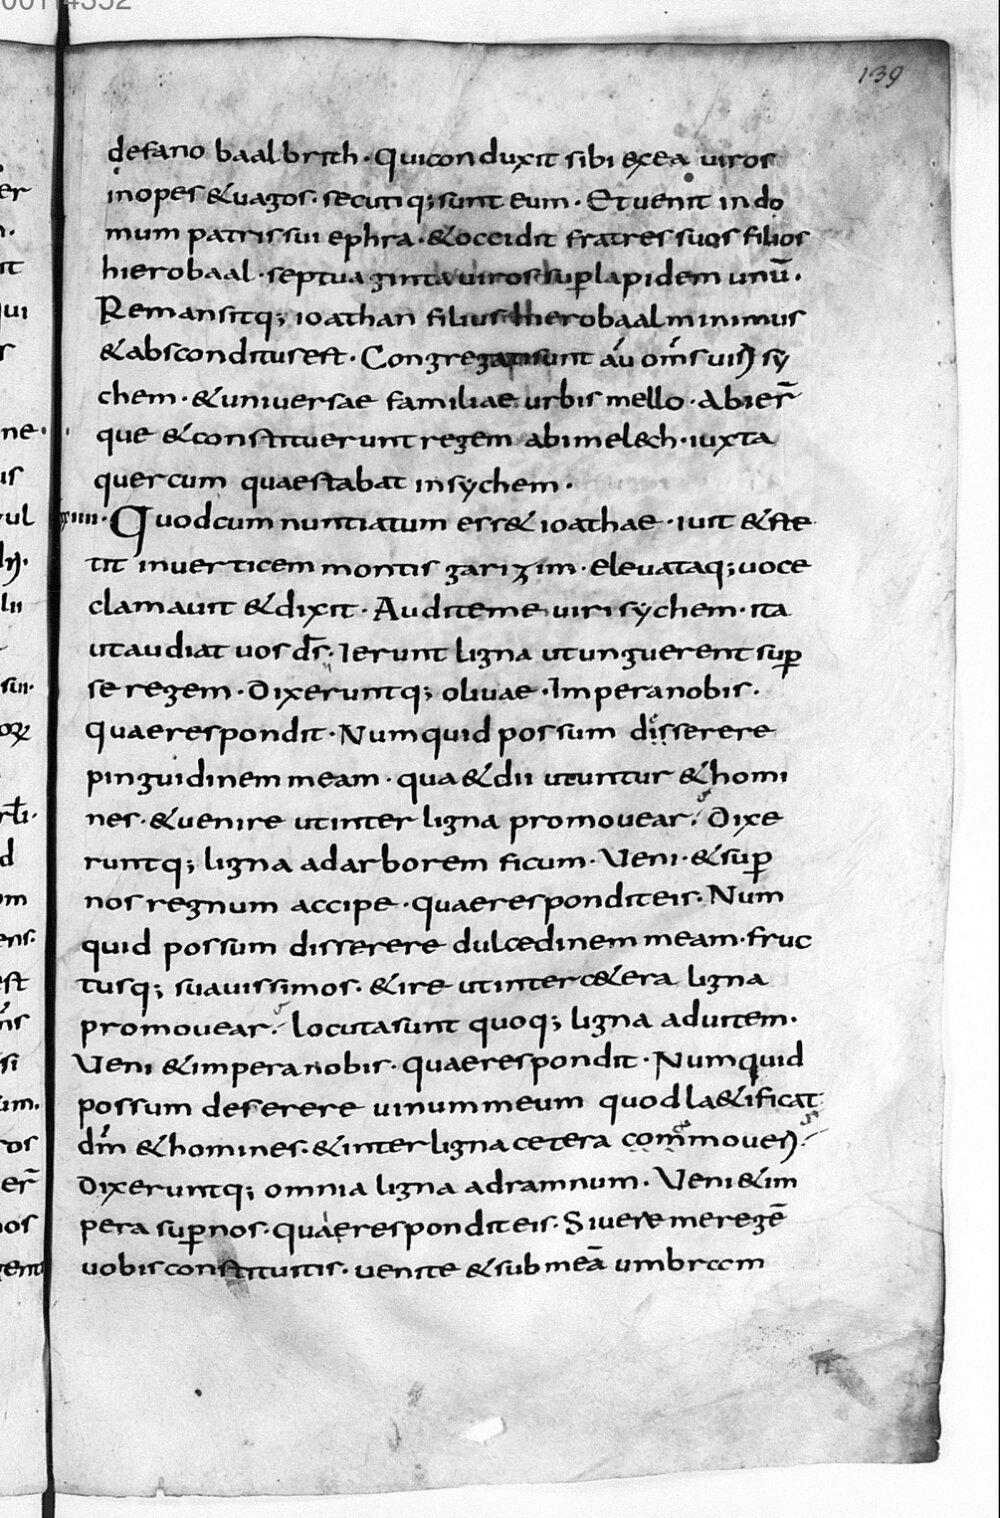 139
defano baalbrith · Quiconduxit sibi exea viros
inopes &vagos · secutiq; sunt eum · Et venit indo
mum patrissui ephra · &occidit fratressuos filios
hierobaal · septuaginta viros sup̄lapidem unū ·
Remansitq; ioathan filius hierobaal minimus
&absconditusest · Congregatisunt aū om̄s uiri sy
chem · &universae familiae urbis mello · Abier̄
que &constituerunt regem abimelech · iuxta
quercum quaestabat insychem ·
xiiii · Quodcum nuntiatum ess& ioathae · iuit &ste
tit inverticem montis garizim · elevataq; voce
clamavit &dixit · Auditeme viri sychem · ita
utaudiat vos ds̄ · Ierunt ligna utunguerent sup̄
se regem · Dixeruntq; olivae · Impera nobis ·
quaerespondit · Numquid possum disserere
pinguidinem meam · qua &dii utuntur &homi
nes · &venire utinter ligna promovear · Dixe
runtq; ligna adarborem ficum · Veni · &sup̄
nos regnum accipe · quaeresponditeis · Num
quid possum disserere dulcedinem meam · fruc
tusq; suavissimos · &ire utinterc&era ligna
promovear · locutasunt quoq; ligna aduitem ·
Veni &impera nobis · quaerespondit · Numquid
possum deserere vinum meum quod la&ificat
dm̄ &homines · &inter ligna cetera commoveri
Dixeruntq; omnia ligna adramnum · Veni &im
pera sup̄nos · quaeresponditeis · Si vere meregē
vobisconstituitis · venite &submeā umbram